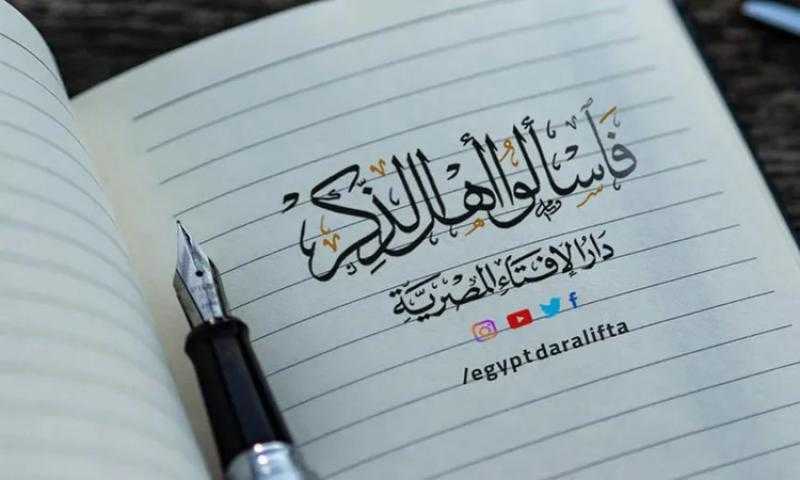 فَاسْأَلُوا أَهْلَ الذِّكْرِ
دَارُ الإِفْتَاءِ المِصْرِيَّةِ
/egyptdaralifta